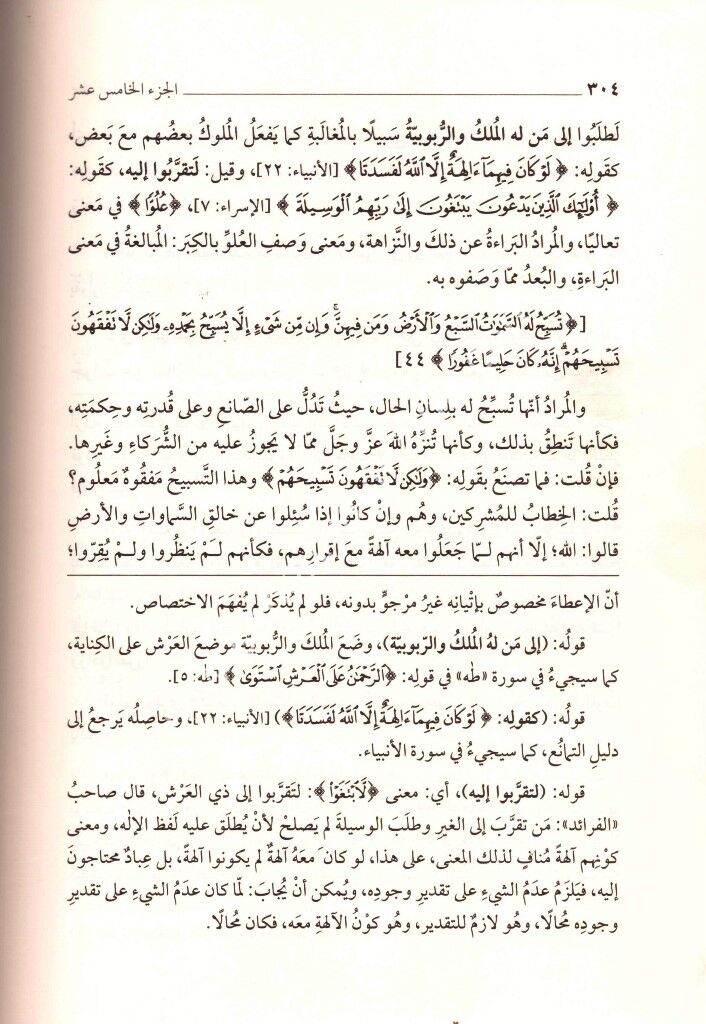 ٣٠٤ ــــــــــــــــــــــــــــــــــــــــ الجزء الخامس عشر
لَطلَبُوا إلى مَن له المُلكُ والرُّبوبيّةُ سَبيلًا بالمُغالَبةِ كما يَفعَلُ المُلوكُ بعضُهم معَ بعَض،
كقَولِه: ﴿لَوْ كَانَ فِيهِمَآ ءَالِهَةٌ إِلَّا ٱللَّهُ لَفَسَدَتَا﴾ [الأنبياء: ٢٢]، وقيل: لَتقرَّبُوا إليه، كقَولِه:
﴿أُوْلَٰٓئِكَ ٱلَّذِينَ يَدْعُونَ يَبْتَغُونَ إِلَىٰ رَبِّهِمُ ٱلْوَسِيلَةَ﴾ [الإسراء: ٧]، ﴿عُلُوًّا﴾ في مَعنى
تعاليًا، والمُرادُ البَراءةُ عن ذلكَ والنَّزاهة، ومَعنى وَصفِ العُلوِّ بالكِبَر: المُبالغةُ في مَعنى
البَراءةِ، والبُعدُ ممّا وَصَفوه به.
[﴿تُسَبِّحُ لَهُ ٱلسَّمَٰوَٰتُ ٱلسَّبْعُ وَٱلْأَرْضُ وَمَن فِيهِنَّ ۚ وَإِن مِّن شَىْءٍ إِلَّا يُسَبِّحُ بِحَمْدِهِۦ وَلَٰكِن لَّا تَفْقَهُونَ
تَسْبِيحَهُمْ ۗ إِنَّهُۥ كَانَ حَلِيمًا غَفُورًا﴾ ٤٤]
والمُرادُ أنّها تُسبِّحُ له بلِسانِ الحال، حيثُ تَدُلُّ على الصّانعِ وعلى قُدرتِه وحِكمَتِه،
فكأنها تَنطِقُ بذلك، وكأنها تُنزِّهُ اللهَ عزَّ وجَلَّ ممّا لا يَجوزُ عليه من الشُّرَكاءِ وغَيرِها.
فإنْ قُلت: فما تصنَعُ بقَولِه: ﴿وَلَٰكِن لَّا تَفْقَهُونَ تَسْبِيحَهُمْ﴾ وهذا التَّسبيحُ مَفقُوهٌ مَعلُوم؟
قُلت: الخِطابُ للمُشرِكين، وهُم وإنْ كانُوا إذا سُئِلوا عن خالقِ السَّماواتِ والأرضِ
قالوا: الله؛ إلّا أنهم لـمّا جَعَلُوا معه آلهةً معَ إقرارِهم، فكأنهم لَمْ يَنظُروا ولَمْ يُقِرّوا؛
أنّ الإعطاءَ مخصوصٌ بإتْيانِه غيرُ مرْجوٍّ بدونه، فلو لم يُذكَرْ لم يُفهَمَ الاختصاص.
قولُه: (إلى مَن لهُ المُلكُ والرّبوبيّة)، وضَعَ المُلكَ والرُّبوبيّة موضعَ العَرْش على الكِناية،
كما سيجيءُ في سورة «طه» في قولِه: ﴿ٱلرَّحْمَٰنُ عَلَى ٱلْعَرْشِ ٱسْتَوَىٰ﴾ [طه: ٥].
قولُه: (كقولِه: ﴿لَوْ كَانَ فِيهِمَآ ءَالِهَةٌ إِلَّا ٱللَّهُ لَفَسَدَتَا﴾) [الأنبياء: ٢٢]، وحاصِلُه يَرجعُ إلى
دليلِ التمانُع، كما سيجيءُ في سورة الأنبياء.
قوله: (لتقرَّبوا إليه)، أي: معنى ﴿لَّٱبْتَغَوْا۟﴾: لتَقرَّبوا إلى ذي العَرْش، قال صاحبُ
«الفرائد»: مَن تقرَّبَ إلى الغيرِ وطلَبَ الوسيلةَ لم يَصلحْ لأنْ يُطلَق عليه لَفظ الإله، ومعنى
كوْنِهم آلهةً مُنافٍ لذلك المعنى، على هذا، لو كانَ معَهُ آلهةٌ لم يكونوا آلهةً، بل عِبادٌ محتاجونَ
إليه، فيَلزَمُ عدَمُ الشيءِ على تقديرِ وجودِه، ويُمكن أنْ يُجابَ: لمّا كان عدَمُ الشيءِ على تقديرِ
وجودِه مُحالًا، وهُو لازمٌ للتقدير، وهُو كوْنُ الآلهةِ معَه، فكان مُحالًا.